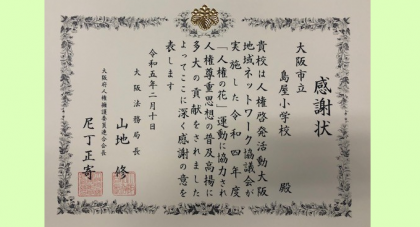 感謝状
大阪市立
島屋小学校 殿
貴校は人権啓発活動大阪
地域ネットワーク協議会が
実施した令和四年度
「人権の花」運動に協力され
人権尊重思想の普及高揚に
多大の貢献をされました
よってここに深く感謝の意を
表します
令和五年二月十日
大阪法務局長
山地 修
大阪府人権擁護委員連合会長
尼丁正寄